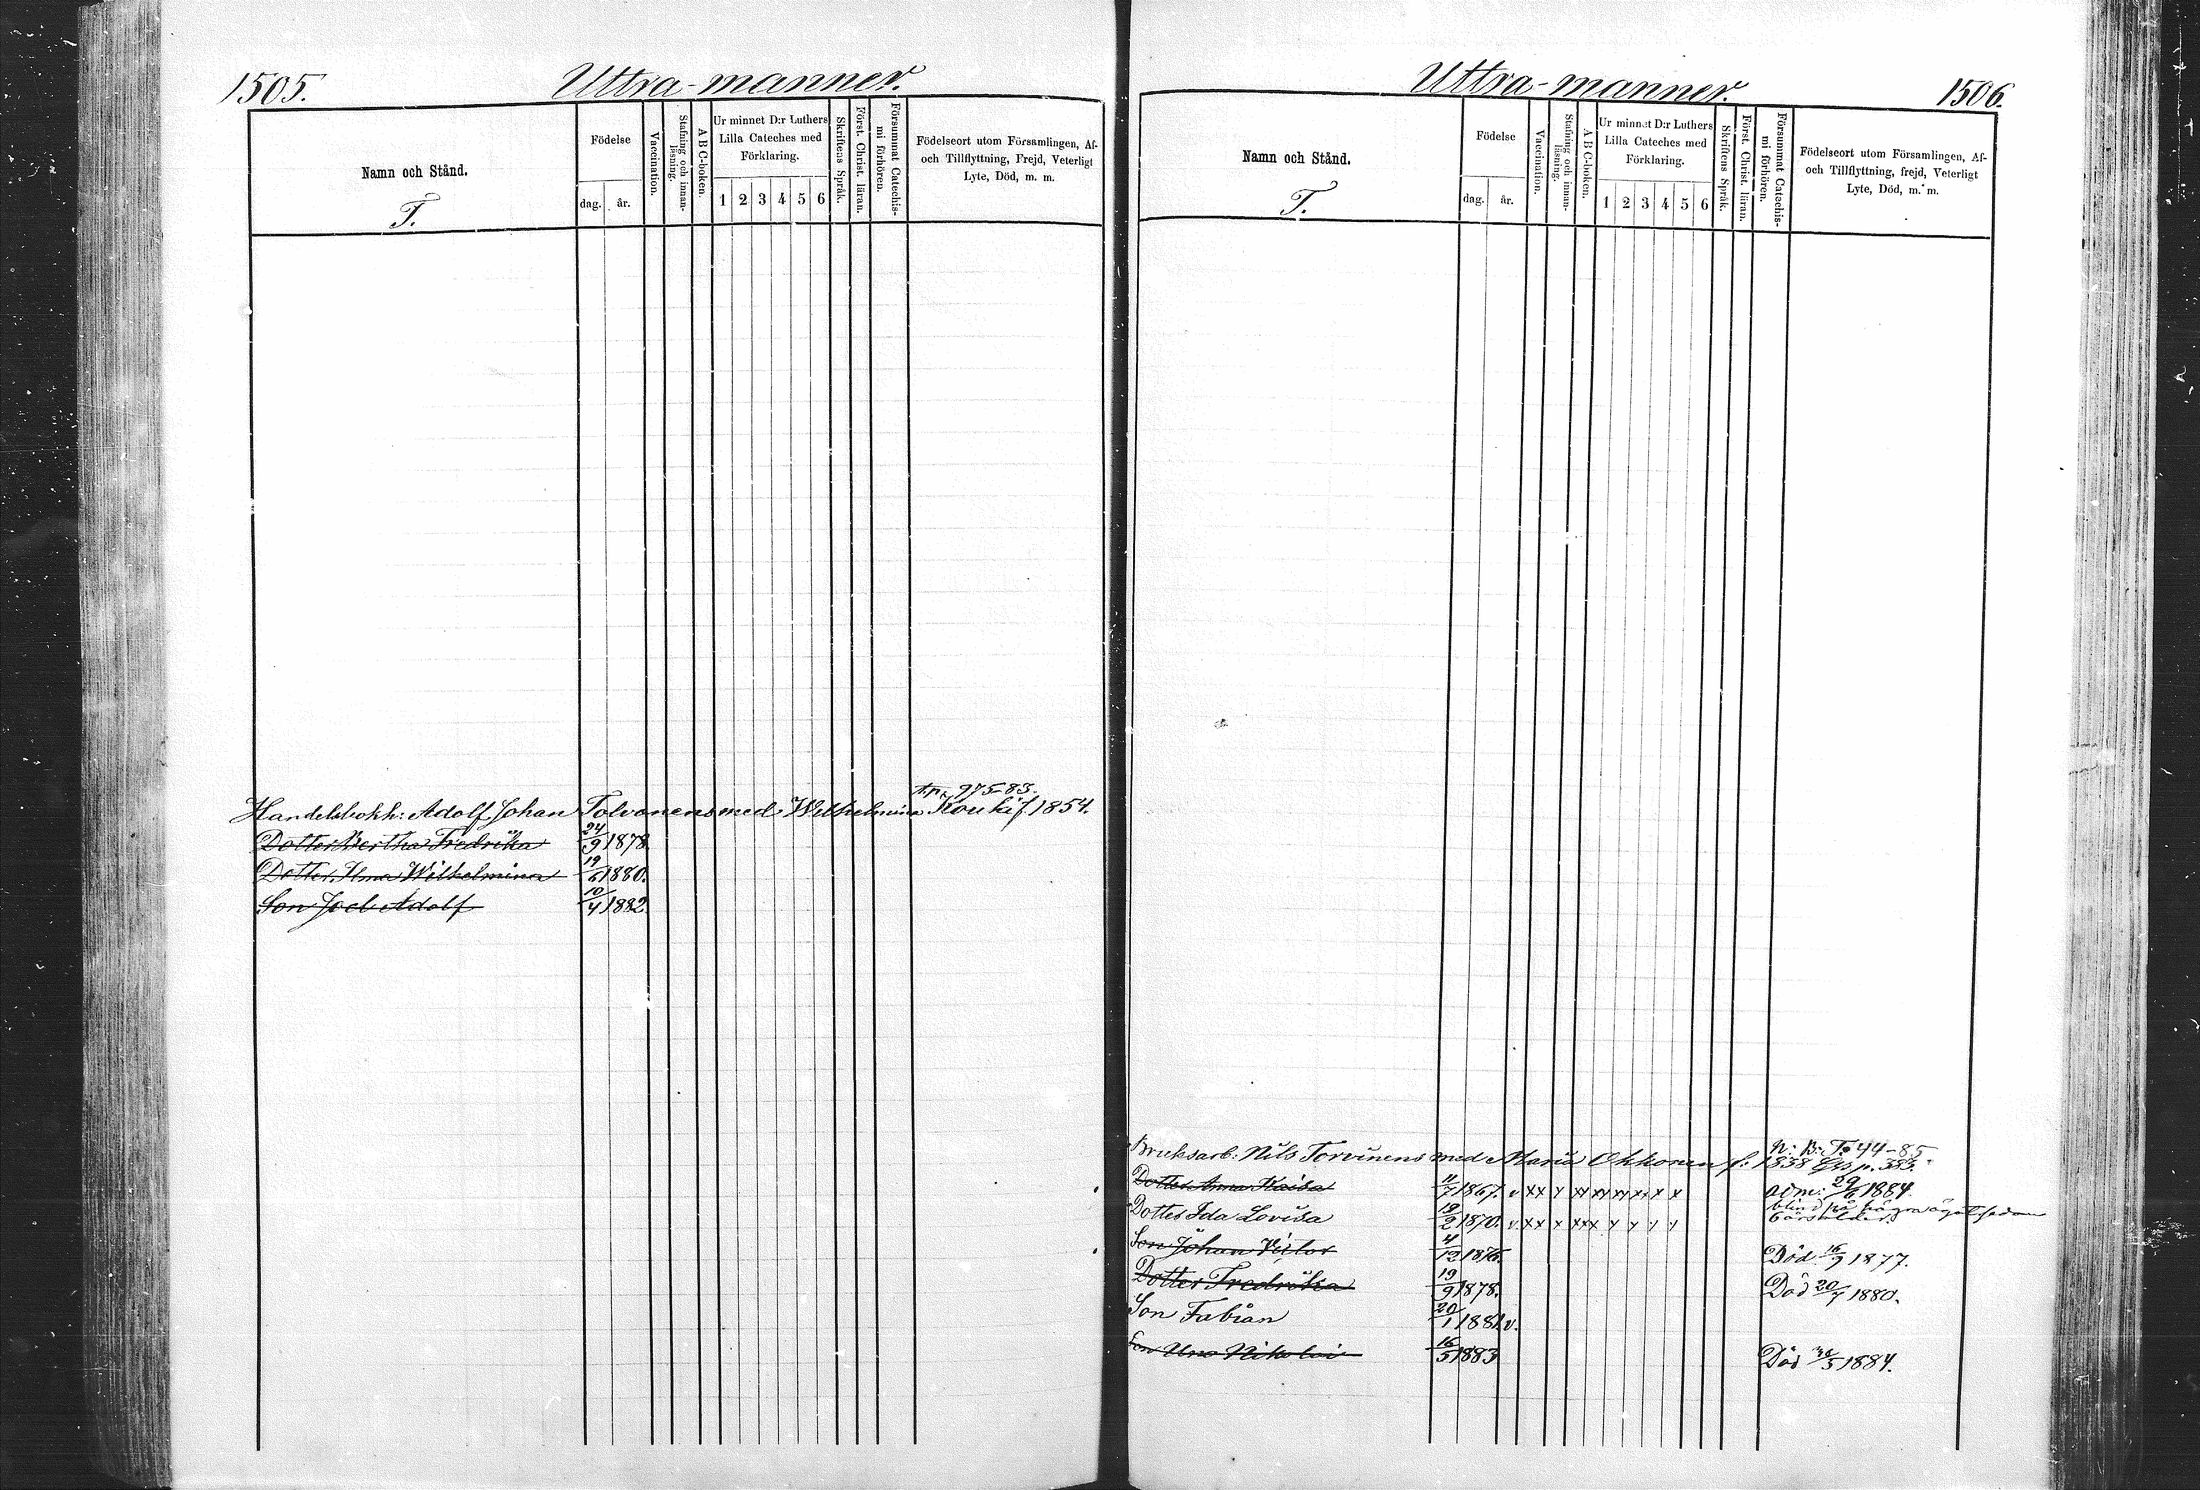 1505.
Uttra-manner.
Namn och Stånd.
T.
Födelse
dag.
år.
Vaccination.
Stafning och innan-
läsning.
A B C-boken.
Ur minnet D:r Luthers
Lilla Cateches med
Förklaring.
1 2 3 4 5 6
Skriftens Språk.
Först. Christ. läran.
Försummat Catechis-
mi förhören.
Födelseort utom Församlingen, Af-
och Tillflyttning, Frejd, Veterligt
Lyte, Död, m. m.
t.p. 975-83.
Handelsbokh: Adolf Johan Tolvanens med Wilhelmina Koukif. 1854.
Dotter Bertha Fredrika 24/9 1878.
Dotter Ilma Wilhelmina 19/6 1880.
Son Joel Adolf 10/4 1882.
Uttra-manner.
1506.
Namn och Stånd.
T.
Födelse
dag.
år.
Vaccination.
Stafning och innan-
läsning.
A B C-boken.
Ur minnet D:r Luthers
Lilla Cateches med
Förklaring.
1 2 3 4 5 6
Skriftens Språk.
Först. Christ. läran.
Försummat Catechis-
mi förhören.
Födelseort utom Församlingen, Af-
och Tillflyttning, frejd, Veterligt
Lyte, Död, m. m.
N: B: To 44-85
Bruksarb: Nils Torvinens med Maria Okkonen f: 1838 p. 383.
Dotter Anna Kaisa 11/7 1867. v xx y xx xy xy xx x x adm: 29/6 1884.
blind på högra ögat sedan
Dotter Ida Lovisa 19/2 1870. v. xx x xxx y y y y
Son Johan Victor 4/12 1875. Död 16/9 1877.
Dotter Fredrika 19/9 1878. Död 20/7 1880.
Son Fabian 20/1 1881 v.
Son Uno Nikolai 16/5 1883 Död 30/5 1884.